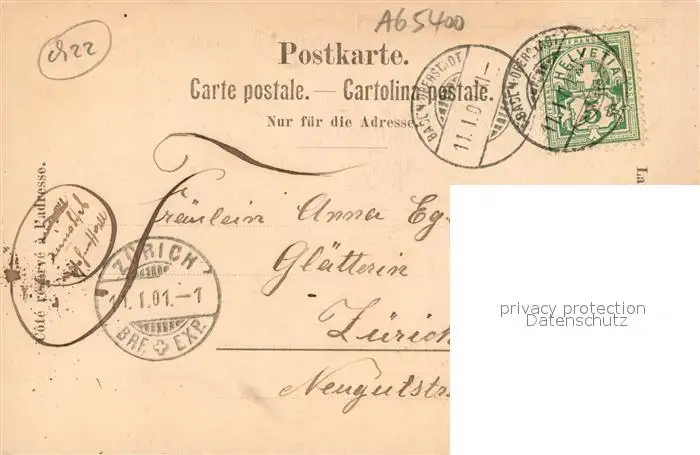 ch22
A65400
Postkarte.
Carte postale. — Cartolina postale.
Nur für die Adresse
BADEN OBERSTADT
11.I.01
BADEN OBERSTADT
HELVETIA
5
Côté réservé à l'adresse.
La
Fräulein Anna Eg-
Glätterin
Zürich
Neugutstr
ZÜRICH
11.I.01.-1
BRF. EXP.
privacy protection
Datenschutz